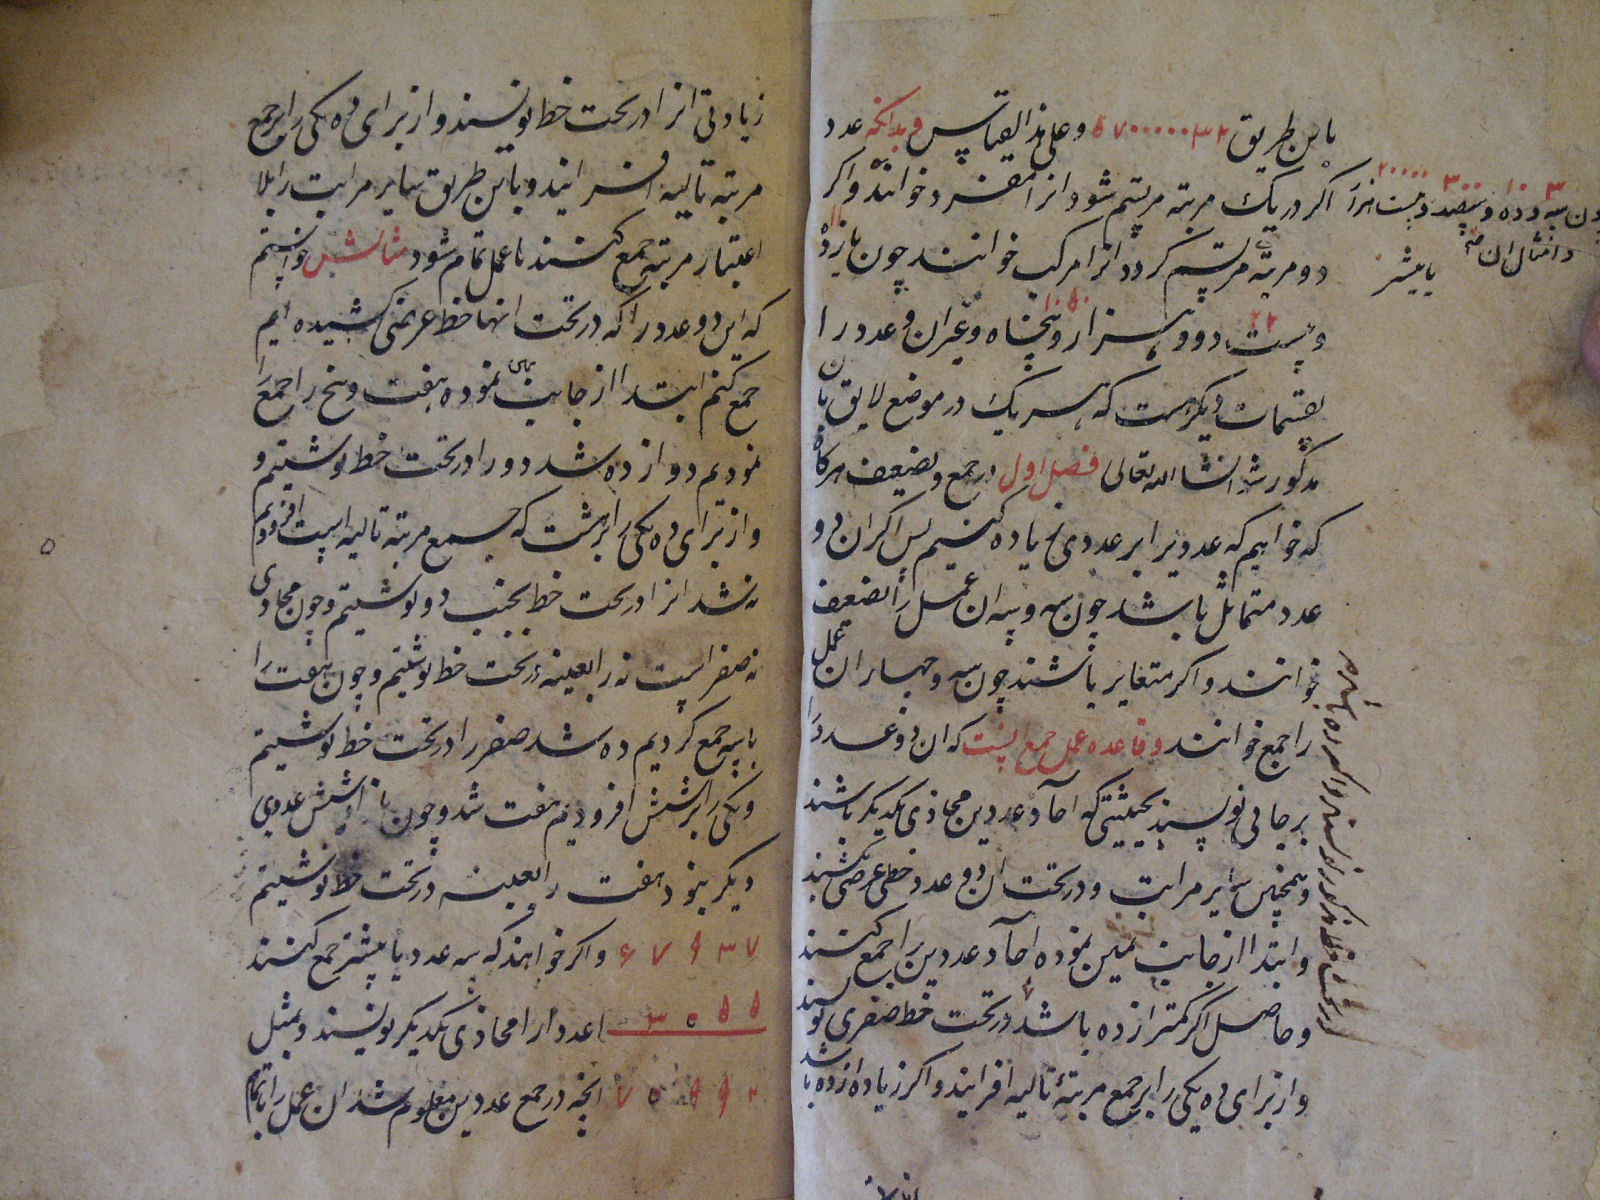 باین طریق ۶۷۰۰۰۰۰۳۲ و علی هذا القیاس و بدانکه عدد
اگر در یک مرتبه مرتسم شود انرا مفرد خوانند و اکر
۳ ۱۰ ۳۰۰ ۲۰۰۰۰
چون سه و ده و سیصد و بیست هزار
و امثال ان
یا بیشتر
دو مرتبه مرتسم کردد انرا مرکب خوانند چون یازده
و بیست و دو و هزار و پنجاه و غیران و عدد را
تقسیمات دیکرست که هر یک در موضع لایق بان
مذکور شد انشا الله تعالی فصل اول در جمع و تضعیف هرکاه
که خواهیم که عددیرا بر عددی زیاده کنیم پس اکر ان دو
عدد متماثل باشد چون سه و سه ان عمل را تضعیف
خوانند و اکر متغایر باشند چون سه و چهار ان عمل
را جمع خوانند و قاعده عمل جمع اینست که ان دو عدد را
بر جائی نویسند بحیثیتی که احاد عددین محاذی یکدیکر باشند
و همچنین سایر مراتب و در تحت ان دو عدد خطی عرضی کشند
و ابتدا از جانب یمین نموده احاد عددین را جمع کنند
و حاصل اکر کمتر از ده باشد در تحت خط نویسند
و از برای ده یکی را بر جمع مرتبهٔ تالیه افزایند و اکر زیاده از ده باشد
زیادتی انرا در تحت خط نویسند و از برای ده یکی را بر جمع
مرتبه تالیه افزایند و باین طریق سایر مراتب را بلا
اعتبار مرتبه جمع کنند تا عمل تمام شود مثالش خواستیم
که این دو عدد را که در تحت انها خط عرضی کشیده ایم
جمع کنیم ابتدا از جانب یمین نموده هفت و پنج را جمع
نمودیم دوازده شد دو را در تحت خط نوشتیم و
و از برای ده یکی را بر هشت که جمع مرتبه تالیه است افزودیم
نه شد انرا در تحت خط بجنب دو نوشتیم و چون محاذی
نه صفر است نه را بعینه در تحت خط نوشتیم و چون هفت را
با سه جمع کردیم ده شد صفر را در تحت خط نوشتیم
و یکی را بر شش افزودیم هفت شد و چون با شش عددی
دیکر نبود هفت را بعینه در تحت خط نوشتیم
۶۷۹۳۷ و اکر خواهند که سه عدد یا بیشتر جمع کنند
۳۰۵۵ اعداد را محاذی یکدیکر نویسند و بمثل
۷۰۹۹۲ انچه در جمع عددین معلوم شد ان عمل را باتمام